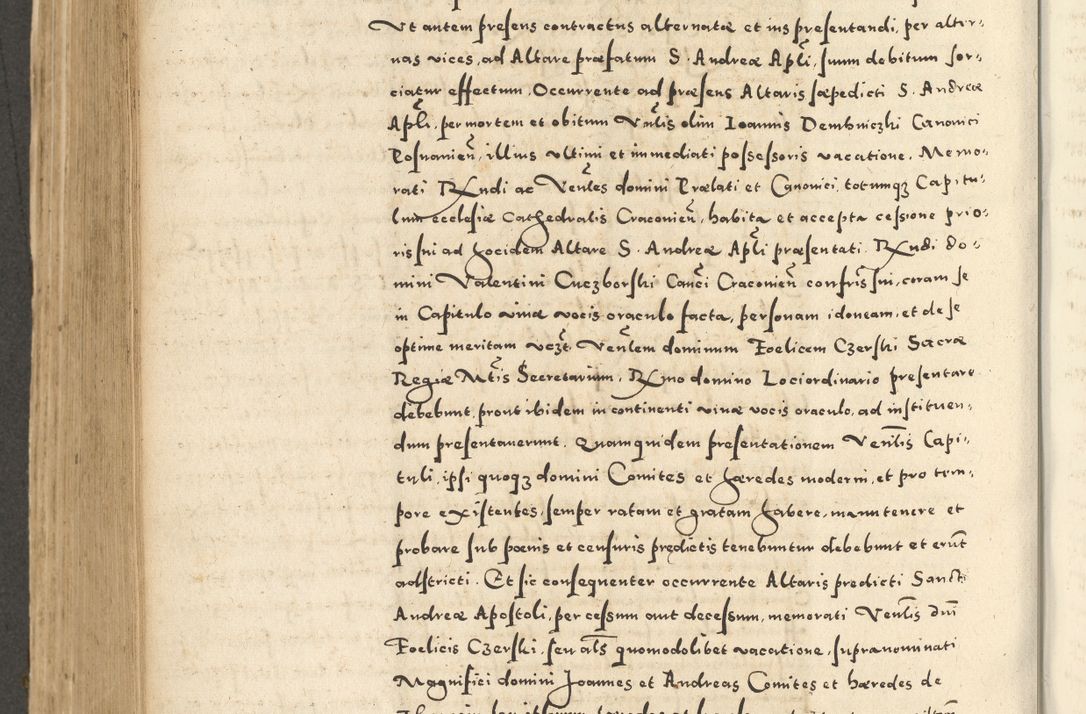 Vt autem presens contractus alternatæ et ius presentandi, per alter-
nas vices, ad Altare præfatum S. Andreæ Apli, suum debitum sor-
ciatur effectum. Occurrente ad præsens Altaris sæpedicti S. Andreæ
Apli, per mortem et obitum Vnlis olim Ioannis Dembniczki Canonici
Posnanien, illius vltimi et immediati possessoris vacatione. Memo-
rati Rndi ac Venles domini Prælati et Canonici, totumqz Capitu-
lum ecclesiæ Cathedralis Craconien, habita et accepta cessione prio-
ris sui ad hocidem Altare S. Andreæ Apli præsentati. Rndi do-
mini Valentini Cuczborski Canci Craconien confris sui, coram se
in Capitulo viuæ vocis oraculo facta, personam idoneam, et de se
optime meritam vczt. Venlem dominum Foelicem Czerski Sacræ
Regiæ Mtis Secretarium, Rmo domino Lociordinario presentare
debebunt, prout ibidem in continenti viuæ vocis oraculo, ad instituen-
dum presentauerunt. Quamquidem presentationem Venlis Capi-
tuli, ipsi quoqz domini Comites et hæredes moderni, et pro tem-
pore existentes, semper ratam et gratam habere, manutenere et
probare sub poenis et censuris predictis tenebuntur debebunt et erut
adstricti. Et sic consequenter occurrente Altaris predicti Sancti
Andreæ Apostoli, per cessum aut decessum, memorati Venlis dni
Foelicis Czerski, seu als quomodolibet vacatione, supranominati
Magnifici domini Joannes et Andreas Comites et hæredes de